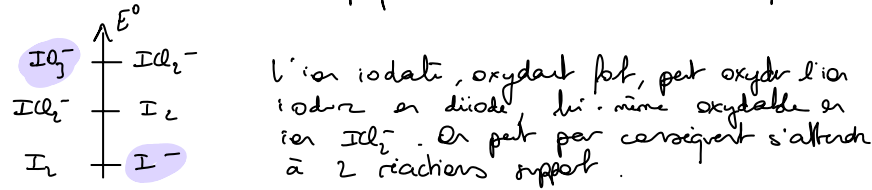 E°
IO₃⁻ ICl₂⁻
ICl₂⁻ I₂
I₂ I⁻
L'ion iodate, oxydant fort, peut oxyder l'ion
iodure en diiode, lui-même oxydable en
ion ICl₂⁻. On peut par conséquent s'attendre
à 2 réactions support.